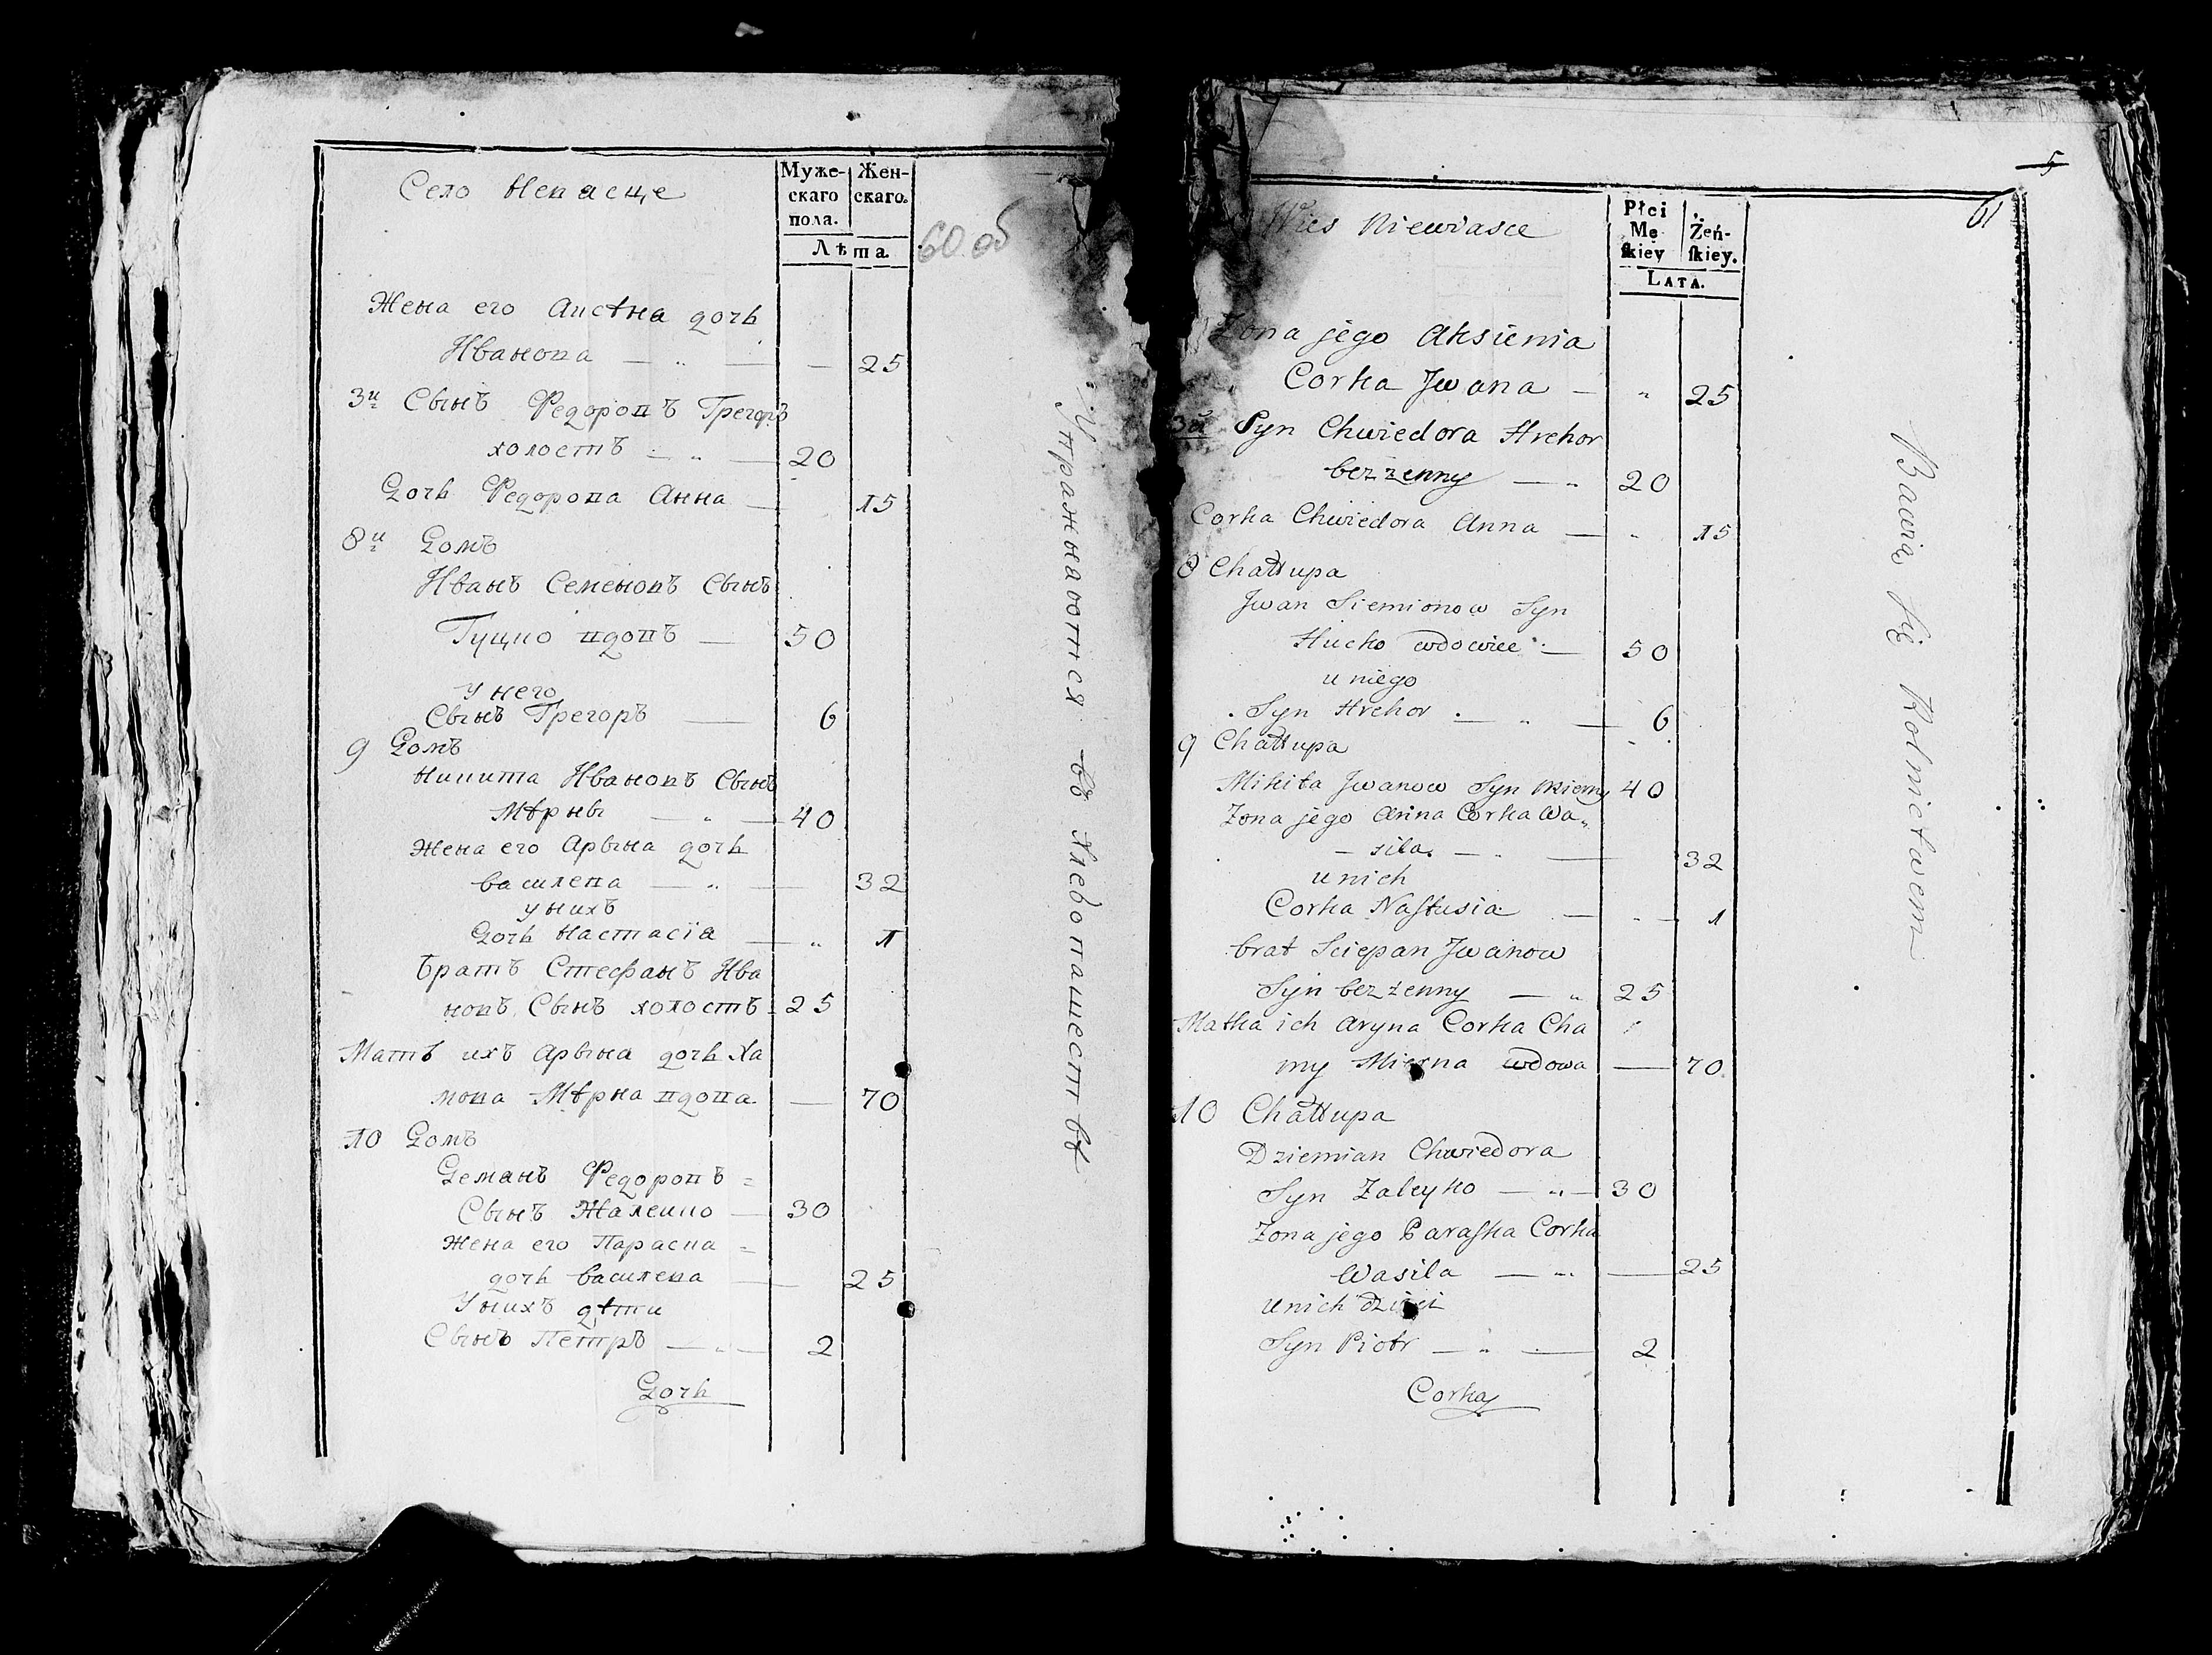 Село Невасще
Муже-
скаго
пола.
Жен-
скаго.
Лѣта.
60 об
Жена его Аксѣна дочь
Иванова — „ — — 25
3й Сынъ Федоровъ Грегоръ
холостъ — „ — 20
Дочь Федорова Анна — 15
8й Домъ
Иванъ Семеновъ Сынъ
Гуцко вдовъ — 50
у него
Сынъ Грегоръ — 6
9 Домъ
Никита Ивановъ Сынъ
Мѣрны — „ — 40
Жена его Арына дочь
Василева — „ — 32
у нихъ
Дочь Настасіа — „ 1
Братъ Стефанъ Ива
новъ Сынъ холостъ 25
Мать ихъ Арына дочь Ха
мова Мѣрна вдова — 70
10 Домъ
Деманъ Федоровъ =
Сынъ Жалейко — 30
Жена его Параска =
дочь Василева — 25
У нихъ дѣти
Сынъ Петръ — „ — 2
Дочь
Упражнаются въ Хлебопашествѣ
5
61
Wies Niewiasce
Płci
Mę
skiey
Żeń-
skiey.
LATA.
Zona jego Aksienia
Corka Jwana — „ 25
3й Syn Chwiedora Hrehor
bezzenny — „ 20
Corka Chwiedora Anna — „ 15
8 Chałłupa
Jwan Siemionow Syn
Hucko wdowiec — 50
u niego
Syn Hrehor — „ — 6
9 Chałłupa
Mikita Jwanow Syn Mierny 40
Zona jego Anna Corka Wa„
– sila — „ — 32
u nich
Corka Nastusia — „ — 1
brat Sciepan Jwanow
Syn bezzenny — „ 25
Matka ich Aryna Corka Cha
my Mierna wdowa — 70
10 Chałłupa
Dziemian Chwiedora
Syn Zaleyko — „ — 30
Zona jego Paraska Corka
Wasila — „ — 25
u nich dzieci
Syn Piotr — „ — 2
Corka
Bawią się Rolnictwem